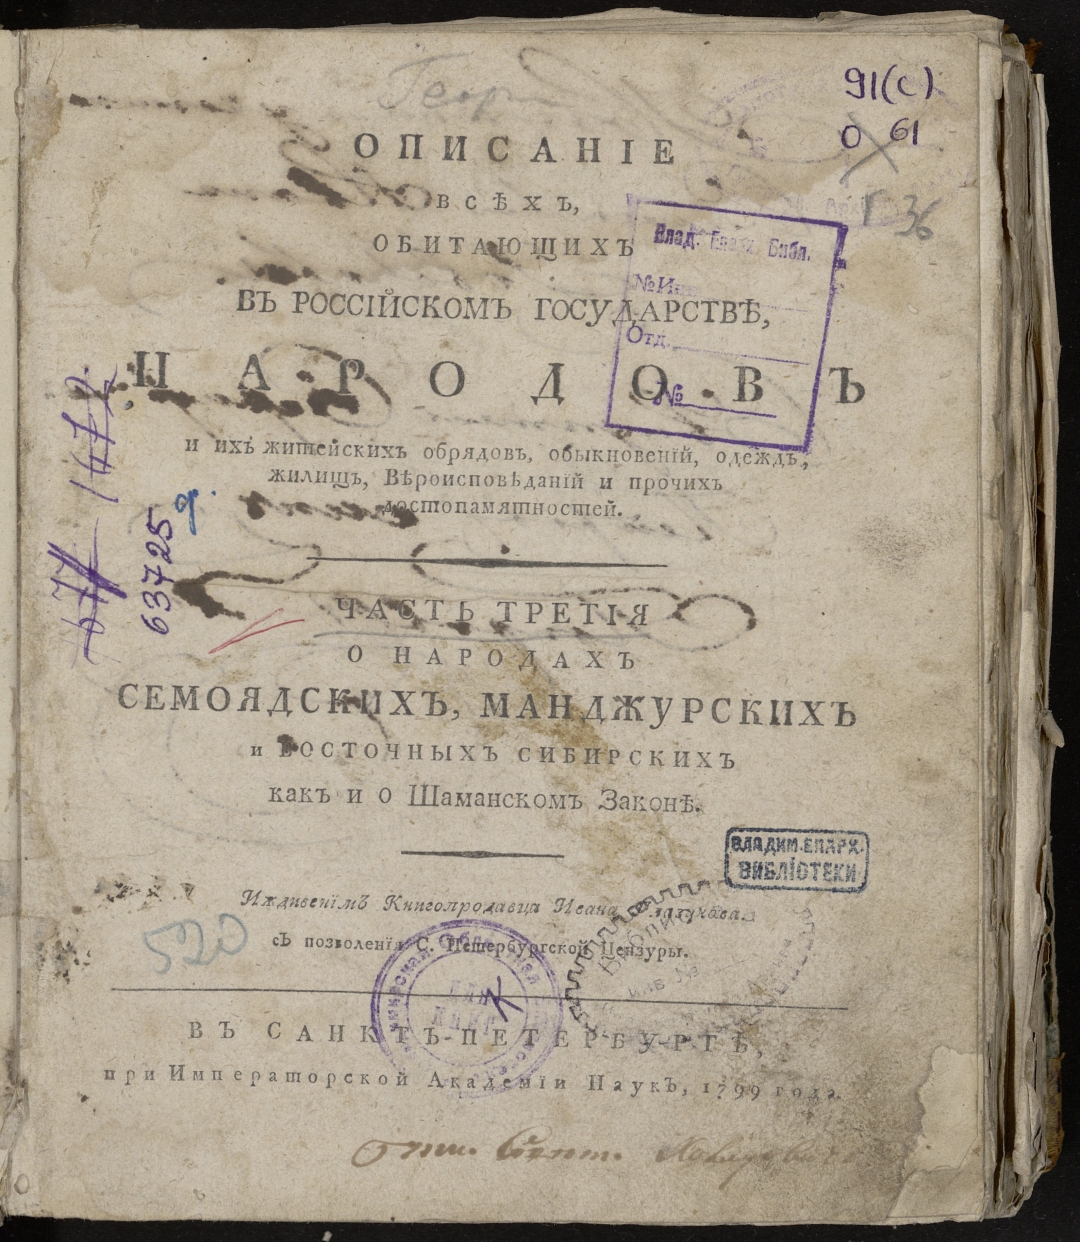 Геор
91(с)
О 61
Г 36
ОПИСАНІЕ
ВСѢХЪ,
ОБИТАЮЩИХЪ
ВЪ РОССІЙСКОМЪ ГОСУДАРСТВѢ,
НАРОДОВЪ
И ИХЪ ЖИТЕЙСКИХЪ ОБРЯДОВЪ, ОБЫКНОВЕНІЙ, ОДЕЖДЪ,
ЖИЛИЩЪ, ВѢРОИСПОВѢДАНІЙ И ПРОЧИХЪ
ДОСТОПАМЯТНОСТЕЙ.
Влад. Епарх. Библ.
№ Инв.
Отд.
№
63725
ЧАСТЬ ТРЕТІЯ
О НАРОДАХЪ
СЕМОЯДСКИХЪ, МАНДЖУРСКИХЪ
И ВОСТОЧНЫХЪ СИБИРСКИХЪ
КАКЪ И О ШАМАНСКОМЪ ЗАКОНѢ.
ВЛАДИМ. ЕПАРХ.
БИБЛІОТЕКИ
Иждивеніемъ Книгопродавца Ивана Глазунова
съ позволенія С. Петербургской Цензуры.
520
инв №
ВЪ САНКТЪ-ПЕТЕРБУРГѢ,
при Императорской Академіи Наукъ, 1799 года.